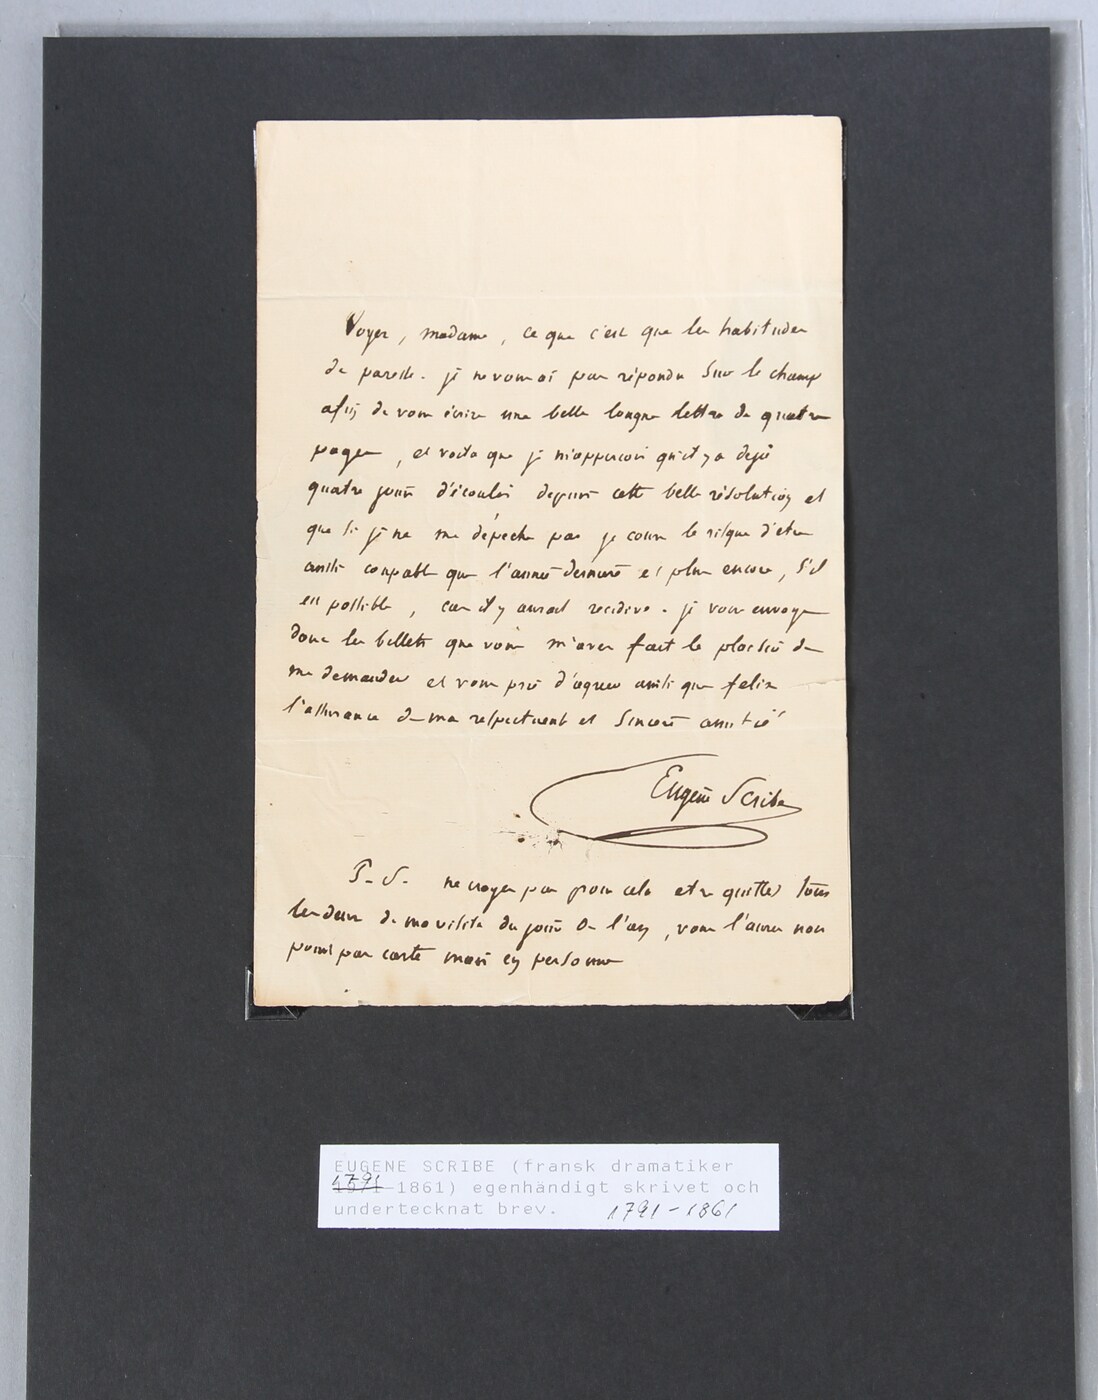 Voyez, madame, ce que c'est que les habitudes
de paresse. je ne vous ai pas répondu sur le champ
afin de vous écrire une belle longue lettre de quatre
pages, et voila que je m'appercois qu'il y a dejà
quatre jours d'écoulés depuis cette belle résolution et
que si je ne me dépeche pas je cours le risque d'etre
aussi coupable que l'année derniere et plus encore, s'il
est possible, car il y auroit recidive. je vous envoye
donc les billets que vous m'avez fait le plaisir de
me demander et vous prie d'agreer ainsi que felix
l'assurance de ma respectueuse et sincere amitié
Eugène Scribe
P.S. ne croyez pas pour cela etre quittes tous
les deux de ma visite du jour de l'an, vous l'aurez non
point par carte mais en personne
EUGENE SCRIBE (fransk dramatiker
1791
-1861) egenhändigt skrivet och
undertecknat brev. 1791-1861